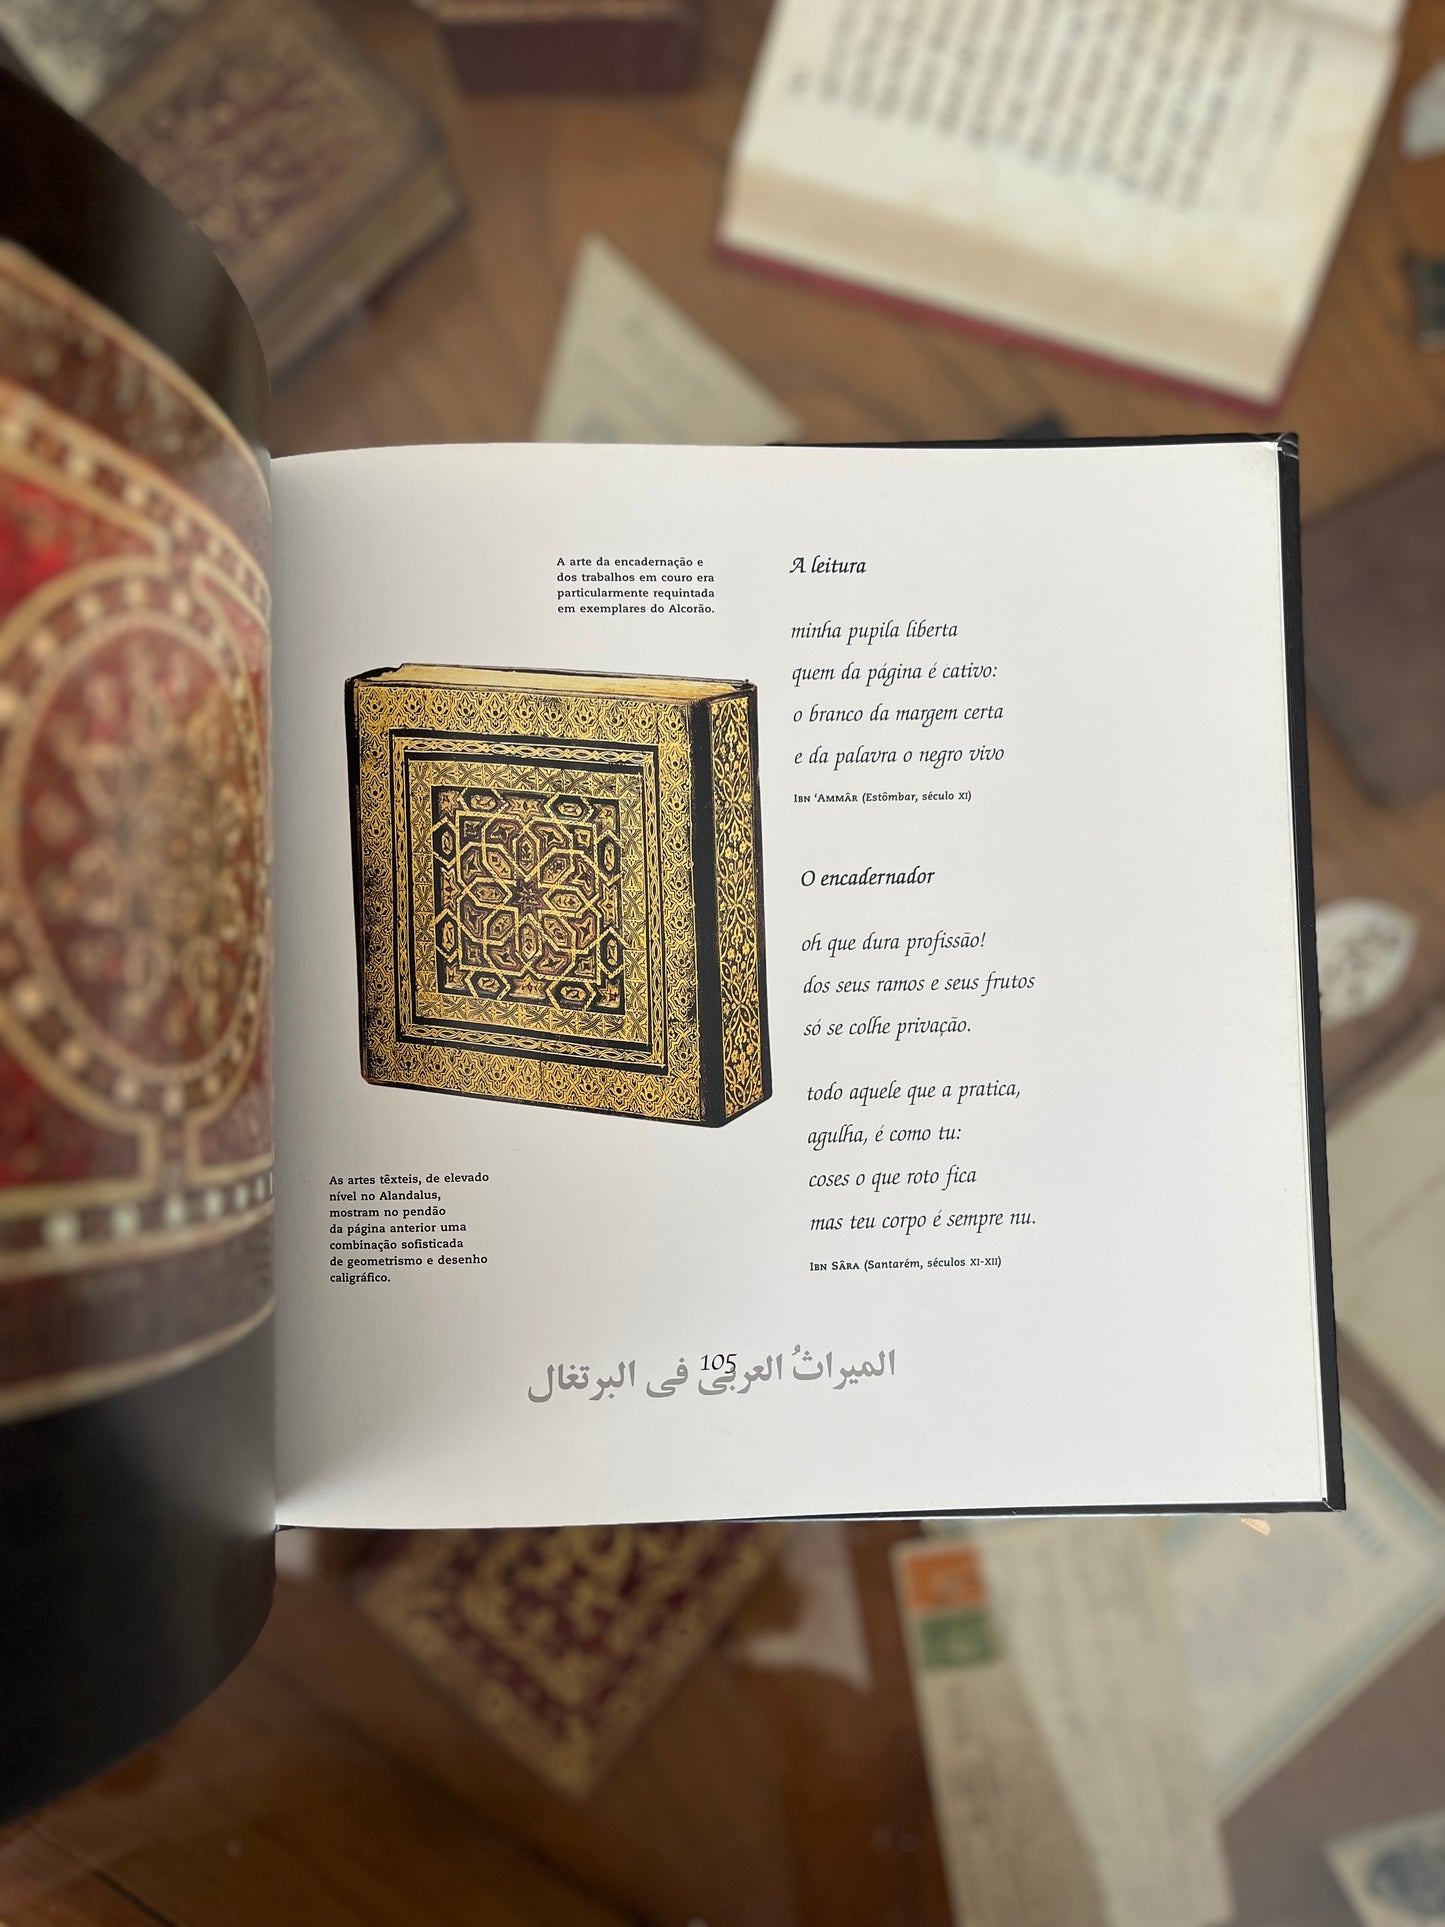 A arte da encadernação e
dos trabalhos em couro era
particularmente requintada
em exemplares do Alcorão.
As artes têxteis, de elevado
nível no Alandalus,
mostram no pendão
da página anterior uma
combinação sofisticada
de geometrismo e desenho
caligráfico.
A leitura
minha pupila liberta
quem da página é cativo:
o branco da margem certa
e da palavra o negro vivo
Ibn ‘Ammâr (Estômbar, século XI)
O encadernador
oh que dura profissão!
dos seus ramos e seus frutos
só se colhe privação.
todo aquele que a pratica,
agulha, é como tu:
coses o que roto fica
mas teu corpo é sempre nu.
Ibn Sâra (Santarém, séculos XI-XII)
الميراثُ العربى فى البرتغال
105